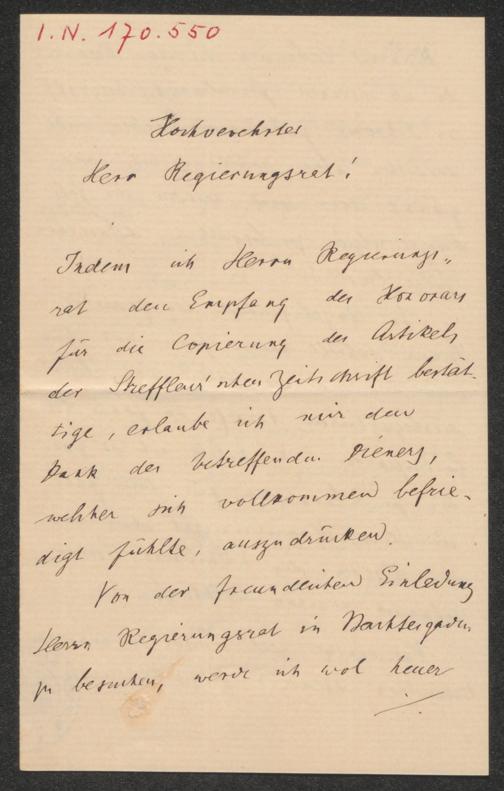 I.N. 170.550
Hochverehrter
Herr Regierungsrat!
Indem ich Herrn Regierungs„
rat den Empfang des Honorars
für die Copierung des Artikels
der Streffleur'schen Zeitschrift bestät-
tige, erlaube ich mir den
Dank des betreffenden Dieners,
welcher sich vollkommen befrie-
digt fühlte, auszudrücken.
Von der freundlichen Einladung
Herrn Regierungsrat in
zu besuchen, werde ich wol heuer